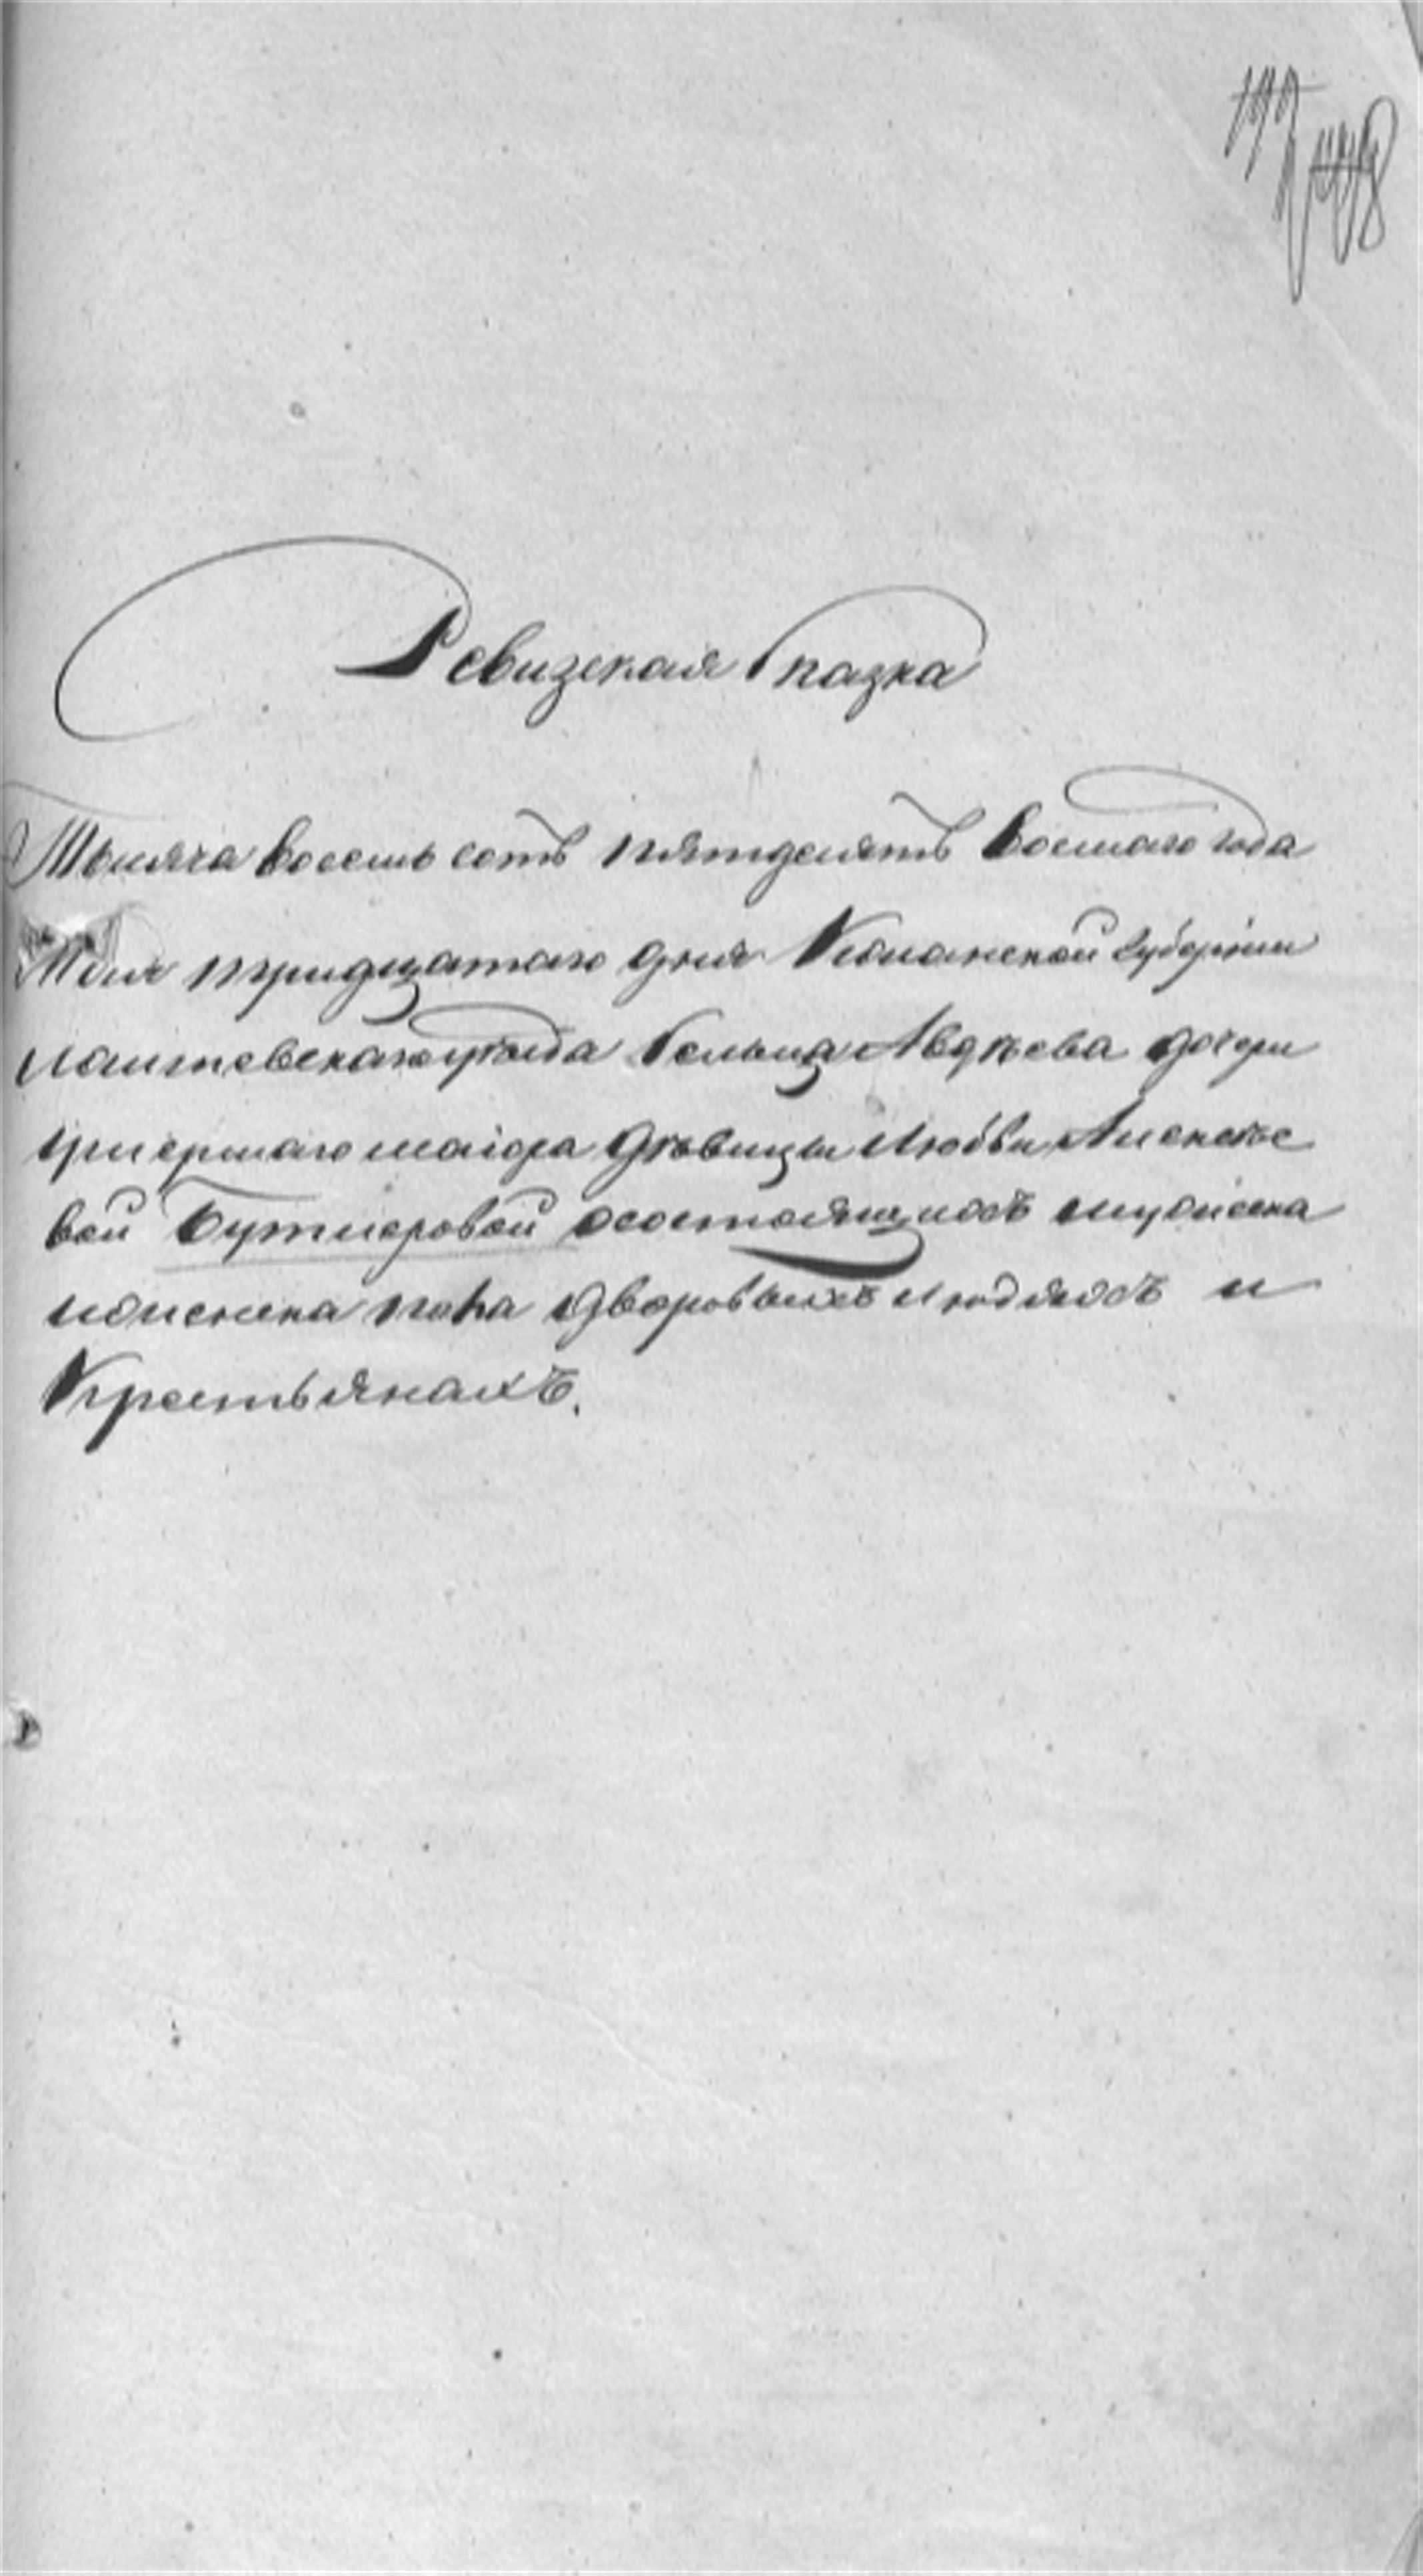 Ревизская Сказка
Тысяча восемь сотъ пятдесятъ восьмаго года
Маія тридцатаго дня Казанской губерніи
Лаишевскаго уѣзда Сельца Авдѣева дочери
примермаіора дѣвицы Любви Алексѣе
вой Бутлеровой о состоящихъ мужеска
и женска пола дворовыхъ людяхъ и
Крестьянахъ.